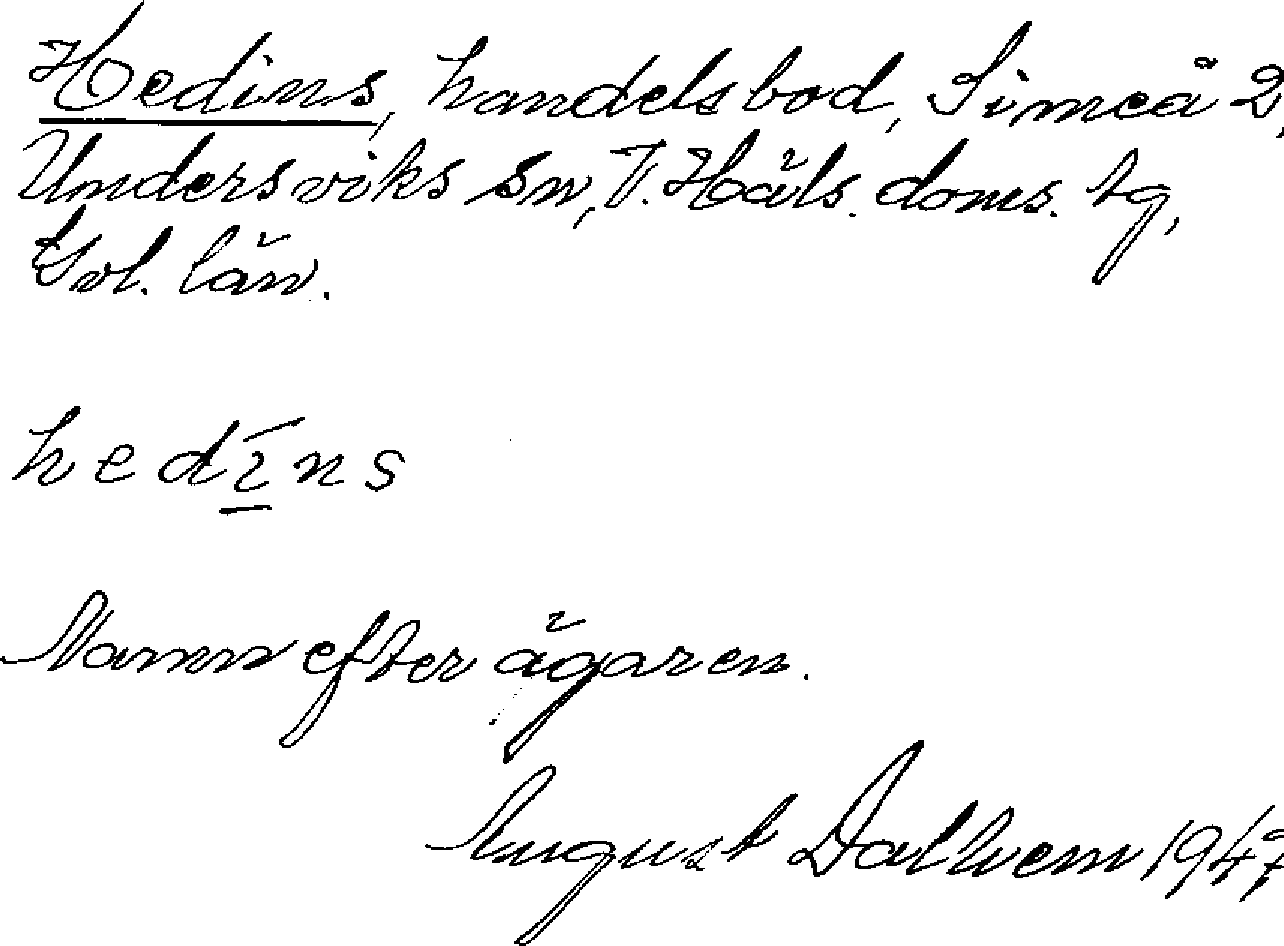 Hedins, handelsbod, Simeå 2,
Undersviks sn, V. Häls. doms. tg,
Gvl. län.
hedīns
Namn efter ägaren.
August Dalhem 1947